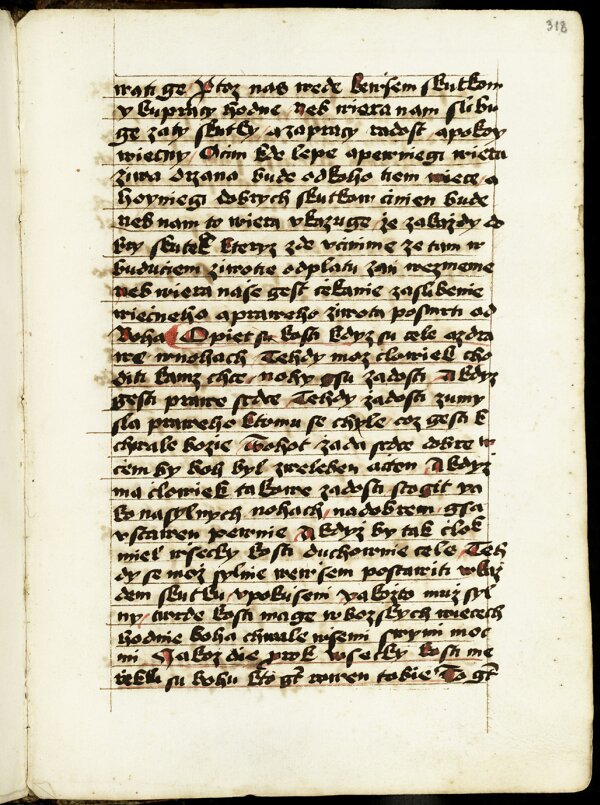 318
wati ge Protoz nas wede kewsem skutkom
y kupracy hodne neb wiera nam slibu
ge zaty skutky azapracy radost apokoy
wiecny Cim kde lepe apewniegi wiera
ziwa drzana bude odkoho tiem wiece a
hoyniegi dobrych skutkow cinien bude
neb nam to wiera vkazuge ze zakazdy do
bry skutek kteryz zde vcinime ze tam w
buduciem ziwotie odplatu zan wezmeme
neb wiera nase gest cekanie zaslibenie
wiecneho apraweho ziwota posmrti od
boha Opiet su kosti kdyz su cele azdra
we wnohach Tehdy moz clowiek cho
diti kamz chce nohy gsu zadosti A kdyz
gesti prawe srdce Tehdy zadosti zumy
sla praweho ktomu se chyle coz gesti k
chwale bozie Tohot zada srdce dobre w
cem by boh byl zweleben acten A kdyz
ma clowiek takowe zadosti stogit ya
ko nasylnych nohach nadobrem gsa
vstawen pewnie A kdyz by tak clok
miel wsecky kosti duchownie cele Teh
dy se moz sylnie wewsem postawiti wkaz
dem skutku ypokuseni yakozto muz syl
ny twrde kosti mage wbozskych wiecech
hodnie boha chwale wsemi swymi moc
mi Jakoz die prok wsecky kosti me
rekli su bohu kto gt rowen tobie To gt